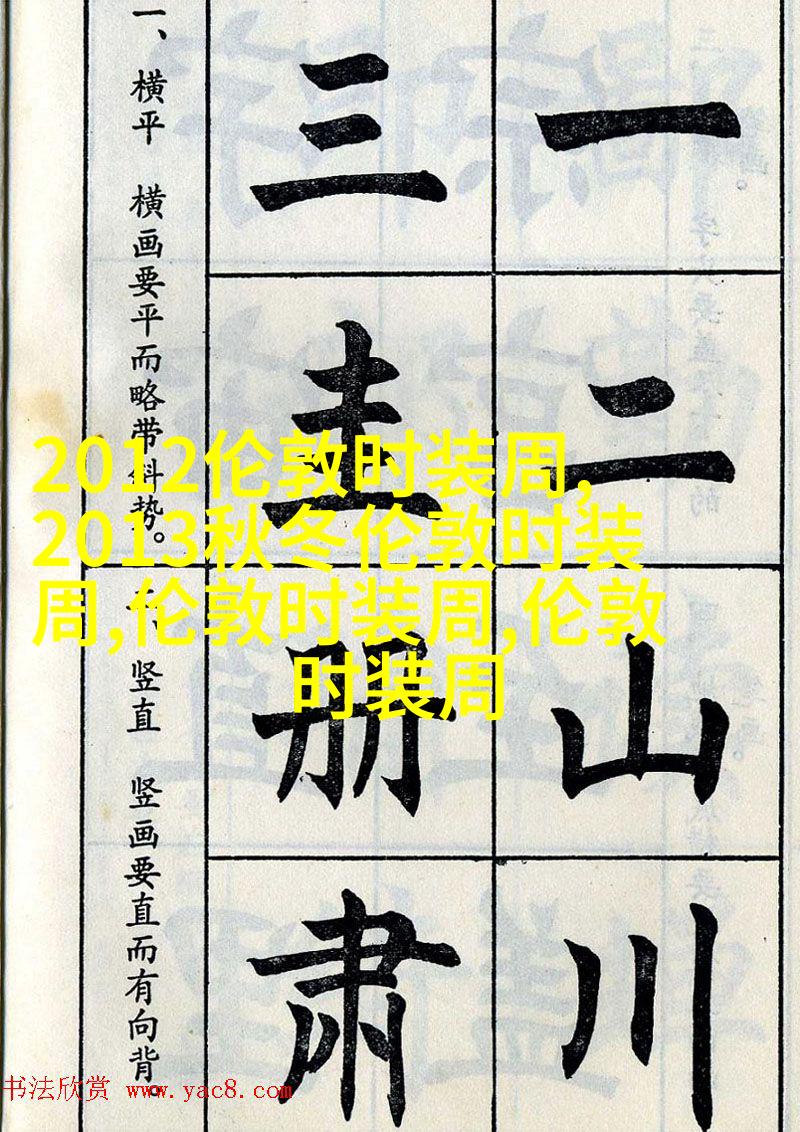 一
二
山
川
三
圭
册
肃
一、横平 横画要平而略带斜势。
二、竖直 竖画要直而有向背。
2012伦敦时装周,
2013秋冬伦敦时装
周,伦敦时装周,伦敦
时装周
书法欣赏 www.yac8.com